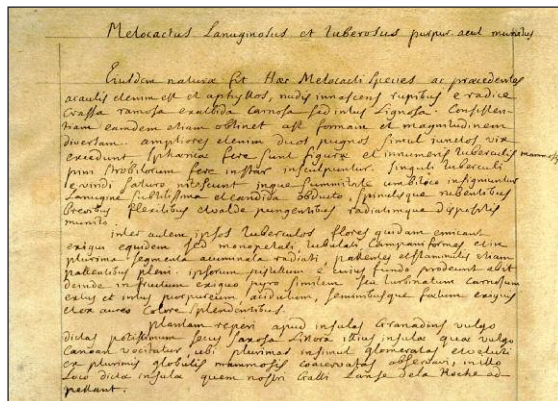 Melocactus Lanuginosus et tuberosus purpur. acul munitus
Eiusdem naturæ est Hæc Melocacti species ac præcedentes
acaulis etenim est et aphyllos, nudis innascens rupibus e radice
Crassa ramosa exalbida carnosa sed intus Lignosa Consisten-
tiam eamdem etiam obtinet ast formam et magnitudinem
diversam. ampliores etenim duos pugnos simul iunctos vix
excedunt sphæricæ fere sunt figuræ et innumeris tuberculis mamosis
pini strobilorum fere instar insculpuntur. singuli tuberculi
e viridi saturo nitescunt inque summitate umbilico insigniuntur
Lanugine subtilissima et candida obducto, spinulisque rubentibus
brevibus flexilibus et valde pungentibus radiatimque dispositis
munito.
inter autem ipsos tuberculos flores quidam emicant
exigui equidem sed monopetali, tubulati, Campaniformes et in
plurima segmenta acuminata radiati, patentes et staminulis etiam
patentibus pleni. ipsorum pistillum e cuius fundo prodeunt abit
deinde in fructum exiguo pyro similem seu turbinatum carnosum
extus et intus purpureum, acidulum, seminibusque fœtum exiguis
et ex aureo colore splendentibus.
plantam reperi apud insulas Granadinas vulgo
dictas potissimum secus saxosa Littora illius insulæ quæ vulgo
Canoan vocitatur, ubi plurimas insimul glomeratas, et veluti
ex plurimis globulis mammosis coacervatas observavi, in illo
Loco dictæ insulæ quem nostri Galli L'anse de la Roche ad-
pellant.